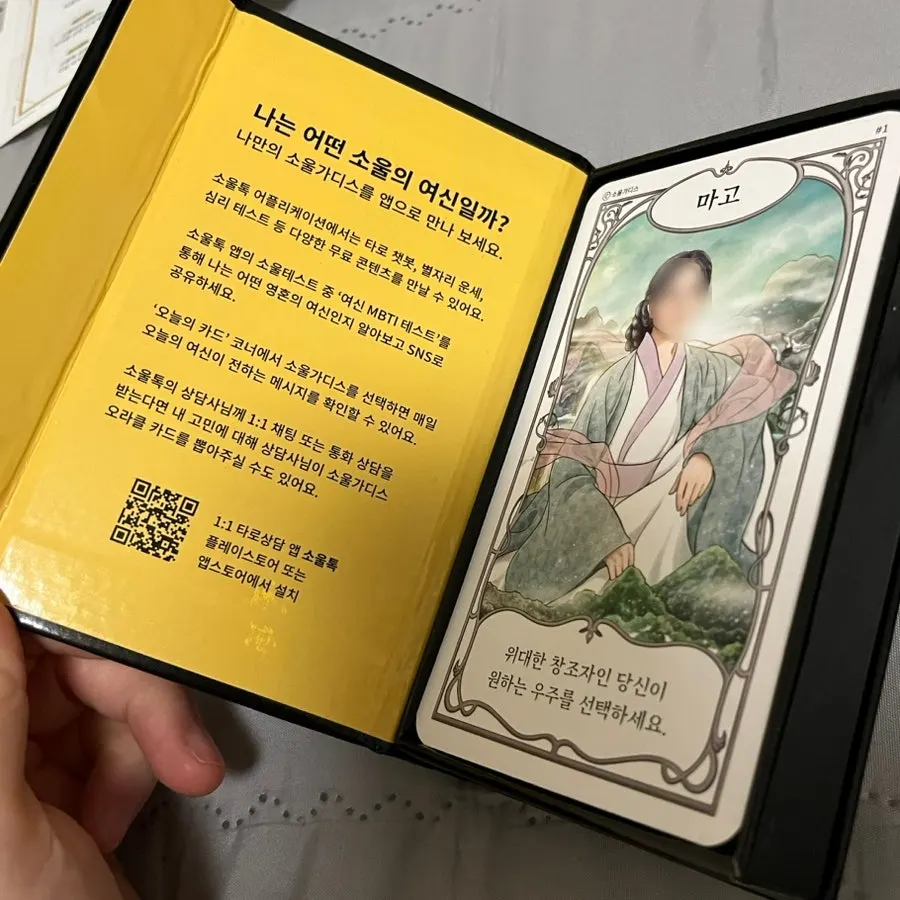 나는 어떤 소울의 여신일까?
나만의 소울가디스를 앱으로 만나 보세요.
소울톡 어플리케이션에서는 타로 챗봇, 별자리 운세,
심리 테스트 등 다양한 무료 콘텐츠를 만날 수 있어요.
소울톡 앱의 소울테스트 중 '여신 MBTI 테스트'를
통해 나는 어떤 영혼의 여신인지 알아보고 SNS로
공유하세요.
'오늘의 카드' 코너에서 소울가디스를 선택하면 매일
오늘의 여신이 전하는 메시지를 확인할 수 있어요.
소울톡의 상담사님께 1:1 채팅 또는 통화 상담을
받는다면 내 고민에 대해 상담사님이 소울가디스
오라클 카드를 뽑아주실 수도 있어요.
1:1 타로상담 앱 소울톡
플레이스토어 또는
앱스토어에서 설치
#1
ⓒ소울가디스
마고
위대한 창조자인 당신이
원하는 우주를 선택하세요.